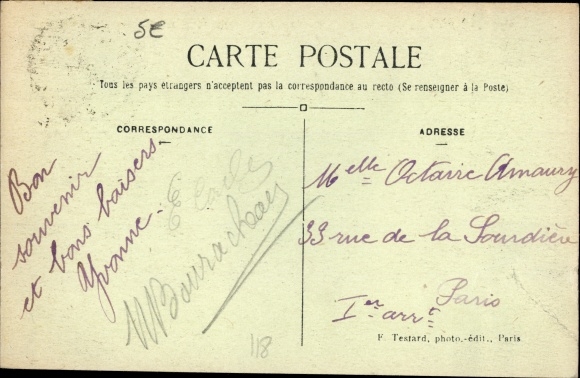 5E
CARTE POSTALE
Tous les pays étrangers n'acceptent pas la correspondance au recto (Se renseigner à la Poste)
CORRESPONDANCE
Bon
souvenir
et bons baisers
Yvonne
118
ADRESSE
Melle Octavie Amaury
33 rue de la Sourdière
Paris
Ier arrt
F. Testard, photo.-édit., Paris